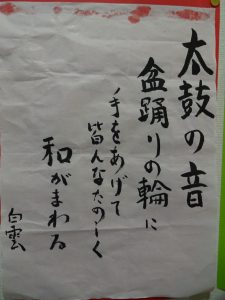 太鼓の音
盆踊りの輪に
手をあげて
皆んなたのしく
和がまわる
白雲